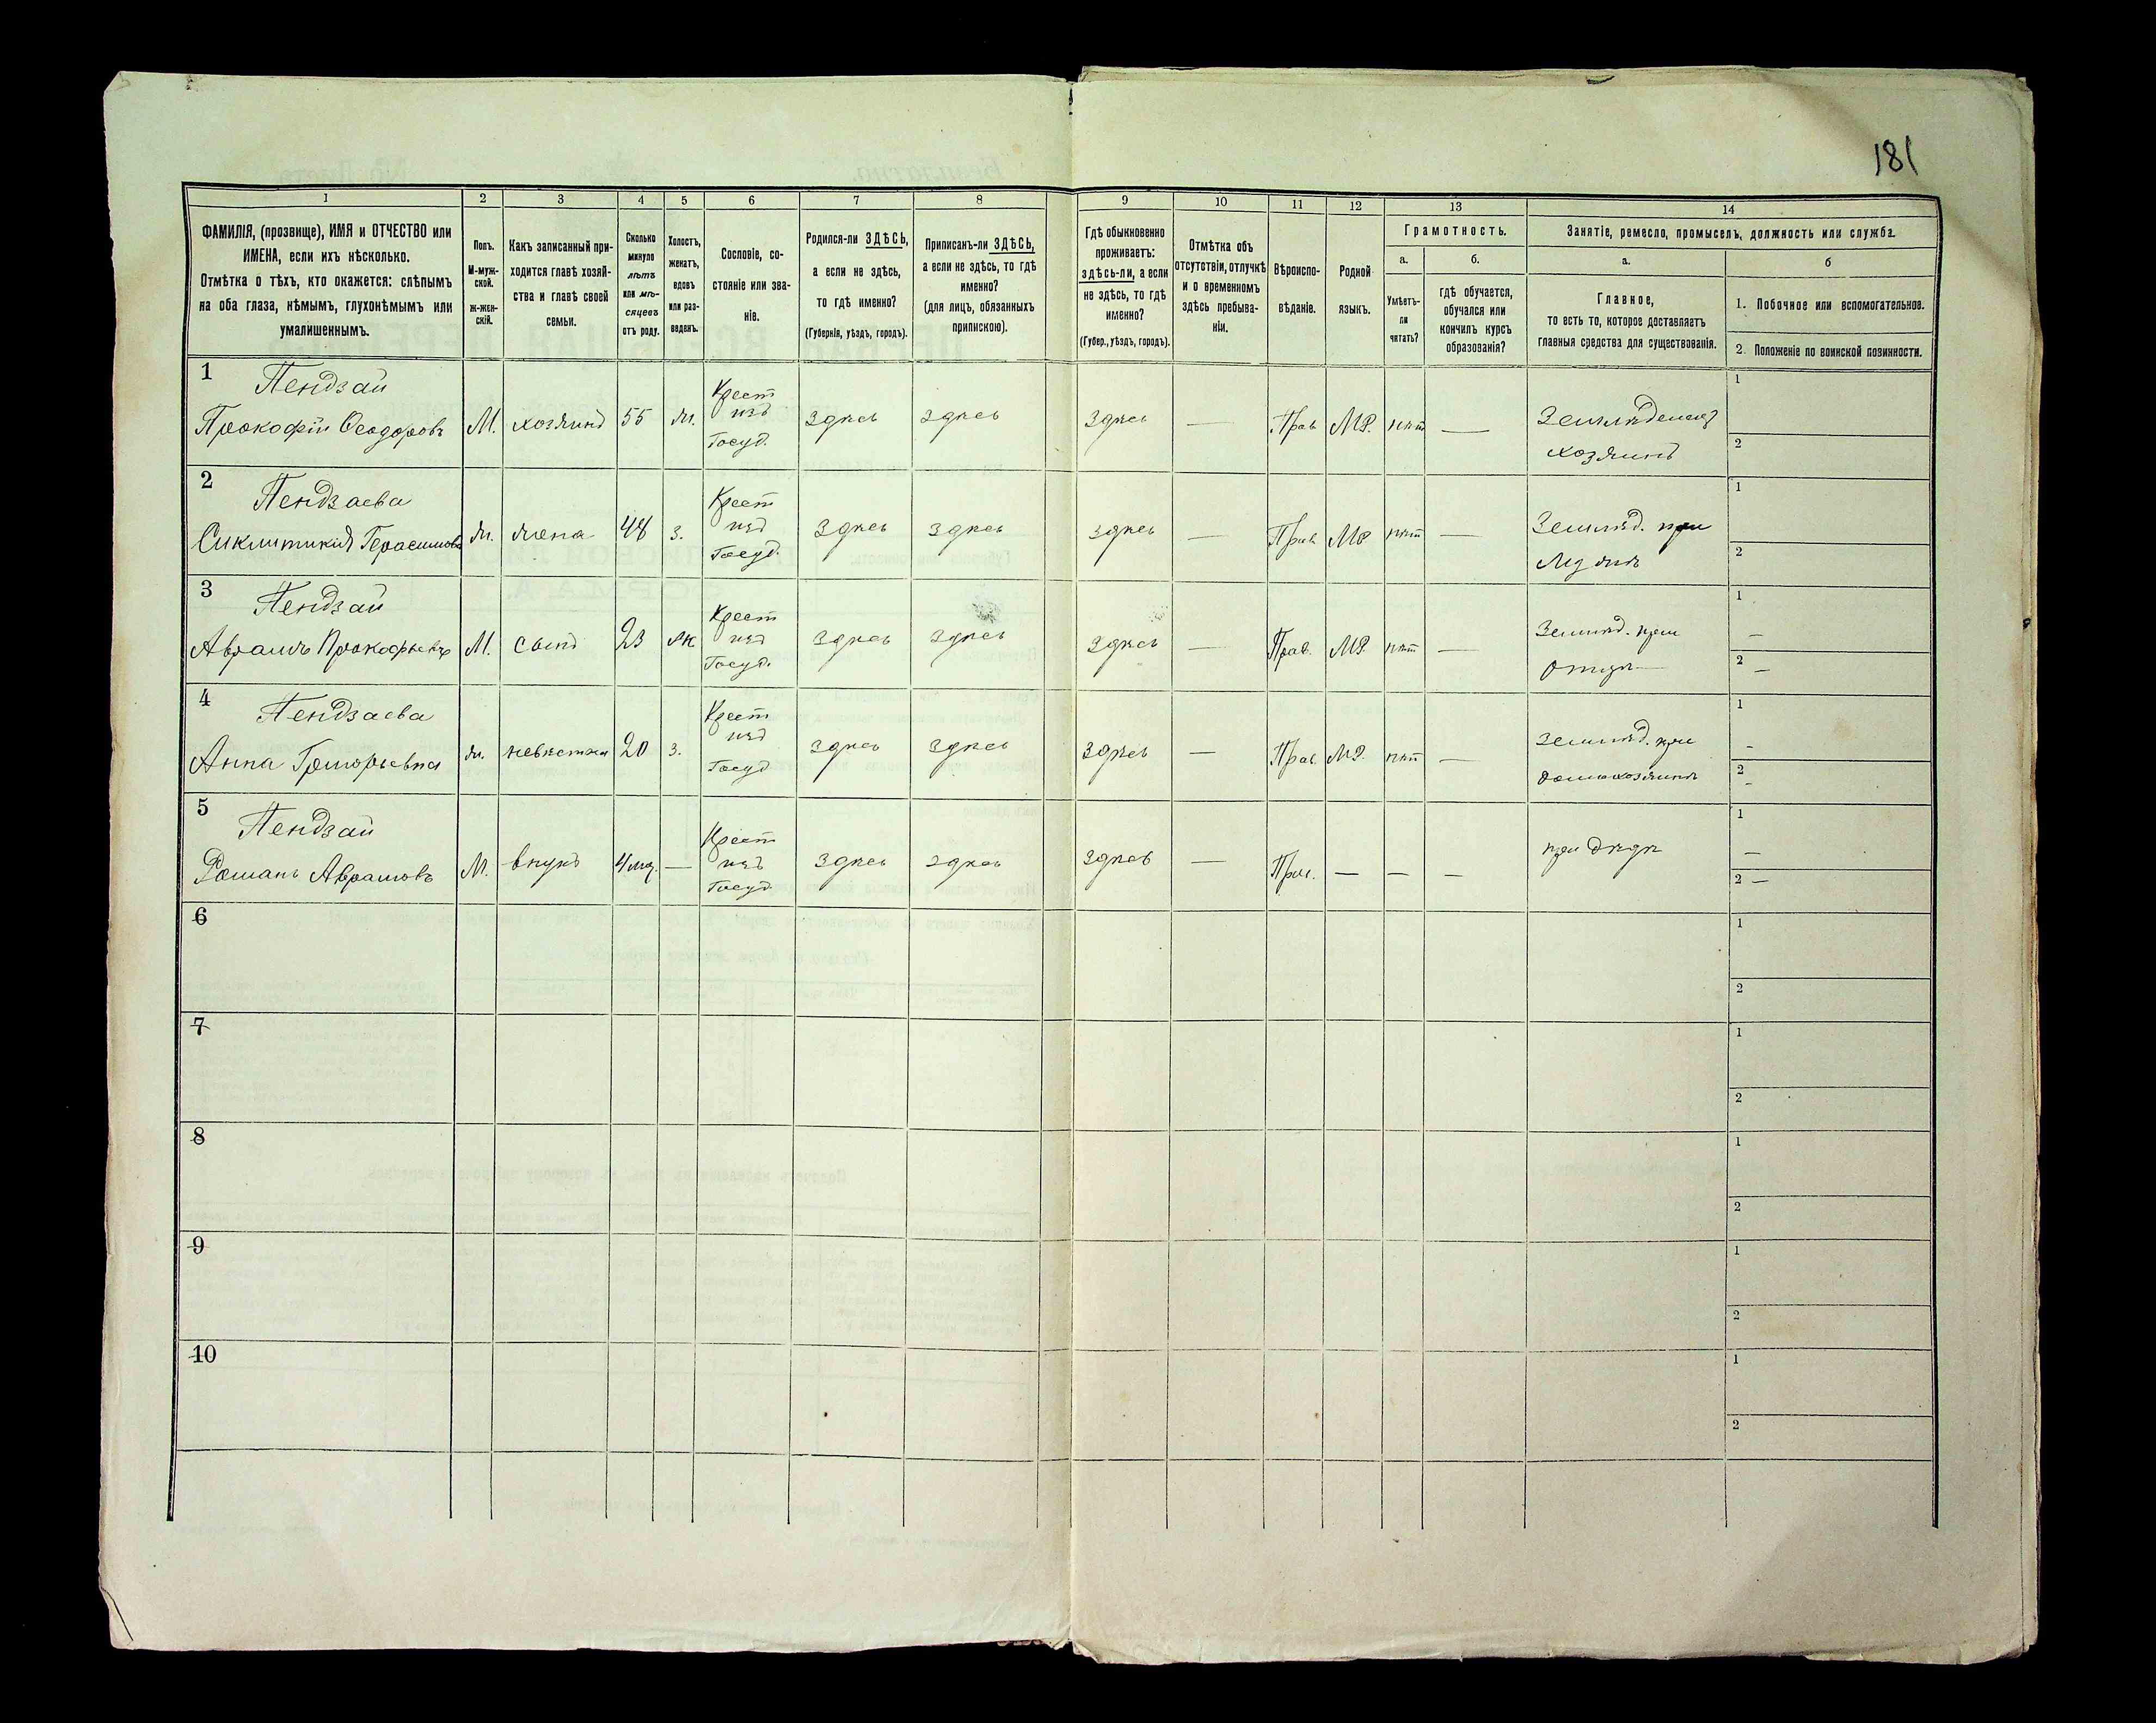 181
1 2 3 4 5 6 7 8 9 10 11 12 13 14
ФАМИЛІЯ, (прозвище), ИМЯ и ОТЧЕСТВО или
ИМЕНА, если ихъ нѣсколько.
Отмѣтка о тѣхъ, кто окажется: слѣпымъ
на оба глаза, нѣмымъ, глухонѣмымъ или
умалишеннымъ.
Полъ.
М-муж-
ской.
ж-жен-
скій.
Какъ записанный при-
ходится главѣ хозяй-
ства и главѣ своей
семьи.
Сколько
минуло
лѣтъ
или мѣ-
сяцевъ
отъ роду.
Холостъ,
женатъ,
вдовъ
или раз-
веденъ.
Сословіе, со-
стояніе или зва-
ніе.
Родился-ли ЗДѢСЬ,
а если не здѣсь,
то гдѣ именно?
(Губернія, уѣздъ, городъ).
Приписанъ-ли ЗДѢСЬ,
а если не здѣсь, то гдѣ
именно?
(для лицъ, обязанныхъ
припискою).
Гдѣ обыкновенно
проживаетъ:
здѣсь-ли, а если
не здѣсь, то гдѣ
именно?
(Губер., уѣздъ, городъ).
Отмѣтка объ
отсутствіи, отлучкѣ
и о временномъ
здѣсь пребыва-
ніи.
Вѣроиспо-
вѣданіе.
Родной
языкъ.
Грамотность.
а.
Умѣетъ-
ли
читать?
б.
гдѣ обучается,
обучался или
кончилъ курсъ
образованія?
Занятіе, ремесло, промыселъ, должность или служба.
а.
Главное,
то есть то, которое доставляетъ
главныя средства для существованія.
б
1. Побочное или вспомогательное.
2. Положеніе по воинской повинности.
1 Пендзай
Прокофій Феодоровъ М. хозяинъ 55 ж. Крест изъ Госуд. здѣсь здѣсь здѣсь — Прав МР. нѣт — Земледѣлец хозяинъ 1 2
2 Пендзаева
Сиклитикія Герасимова ж. жена 48 з. Крест изъ Госуд. здѣсь здѣсь здѣсь — Прав. МР нѣт — Землѣд. при мужѣ 1 2
3 Пендзай
Аврамъ Прокофьевъ М. сынъ 23 ж Крест изъ Госуд. здѣсь здѣсь здѣсь — Прав. МР. нѣт — Землѣд. при отцѣ — 1 — 2 —
4 Пендзаева
Анна Григорьевна ж. невѣстка 20 з. Крест изъ Госуд здѣсь здѣсь здѣсь — Прав. МР. нѣт — Землѣд. при домохозяинѣ 1 – 2 –
5 Пендзай
Романъ Аврамовъ М. внукъ 4 мц. — Крест изъ Госуд. здѣсь здѣсь здѣсь — Прав. — — — при дѣдѣ 1 — 2 —
6 1 2
7 1 2
8 1 2
9 1 2
10 1 2